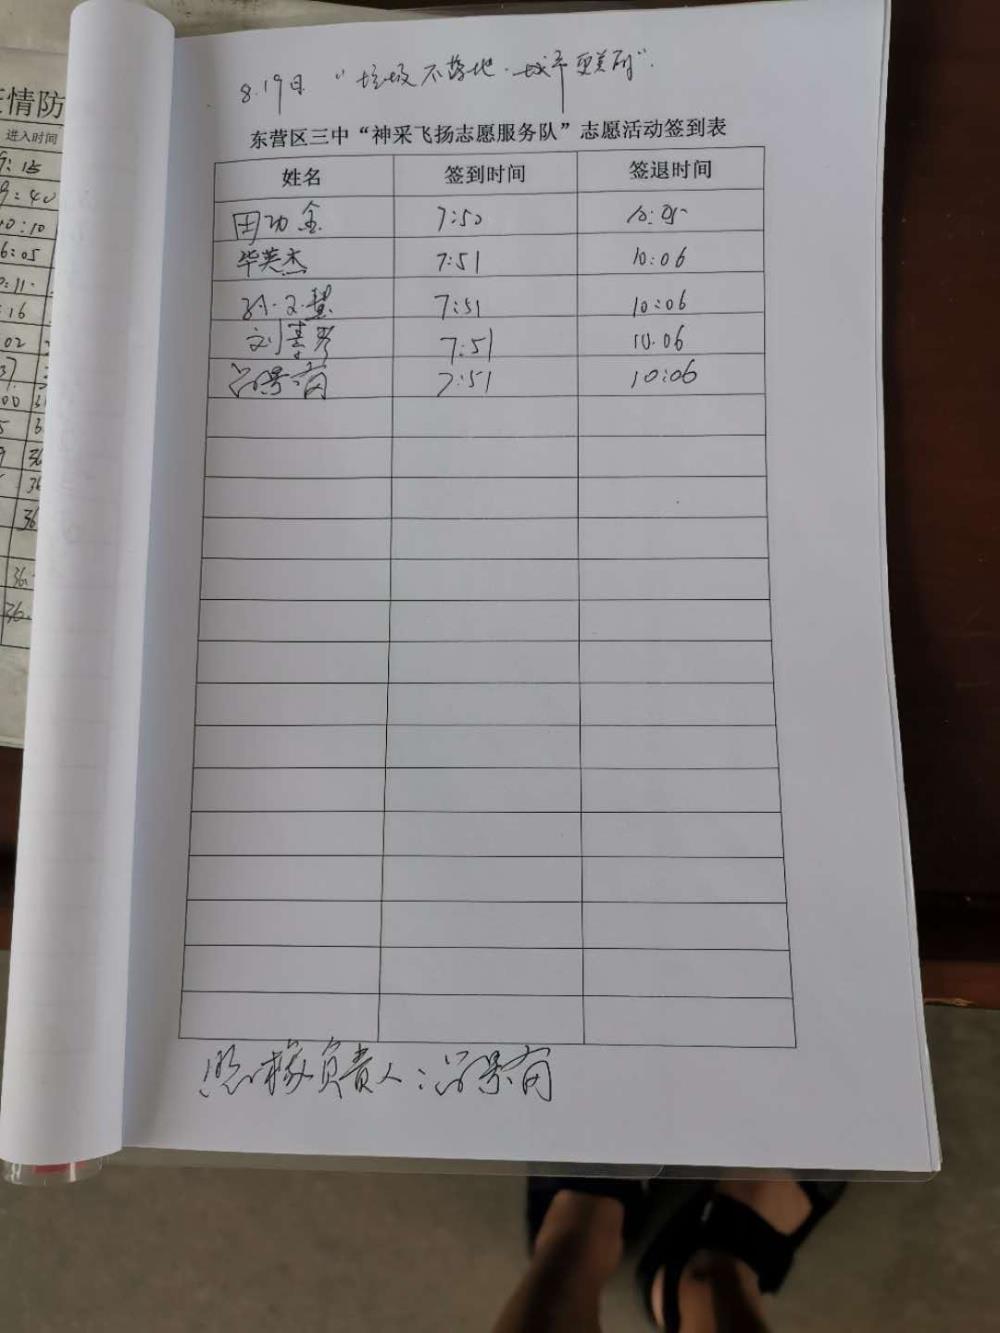 情防
进入时间
9:15
9:40
10:10
6:05
:16
02
8.19日 "垃圾不落地·城市更美丽".
东营区三中“神采飞扬志愿服务队”志愿活动签到表
姓名 签到时间 签退时间
田功金 7:50 10:05
毕英杰 7:51 10:06
孙文慧 7:51 10:06
刘 7:51 10:06
吕景 7:51 10:06
负责人:吕景